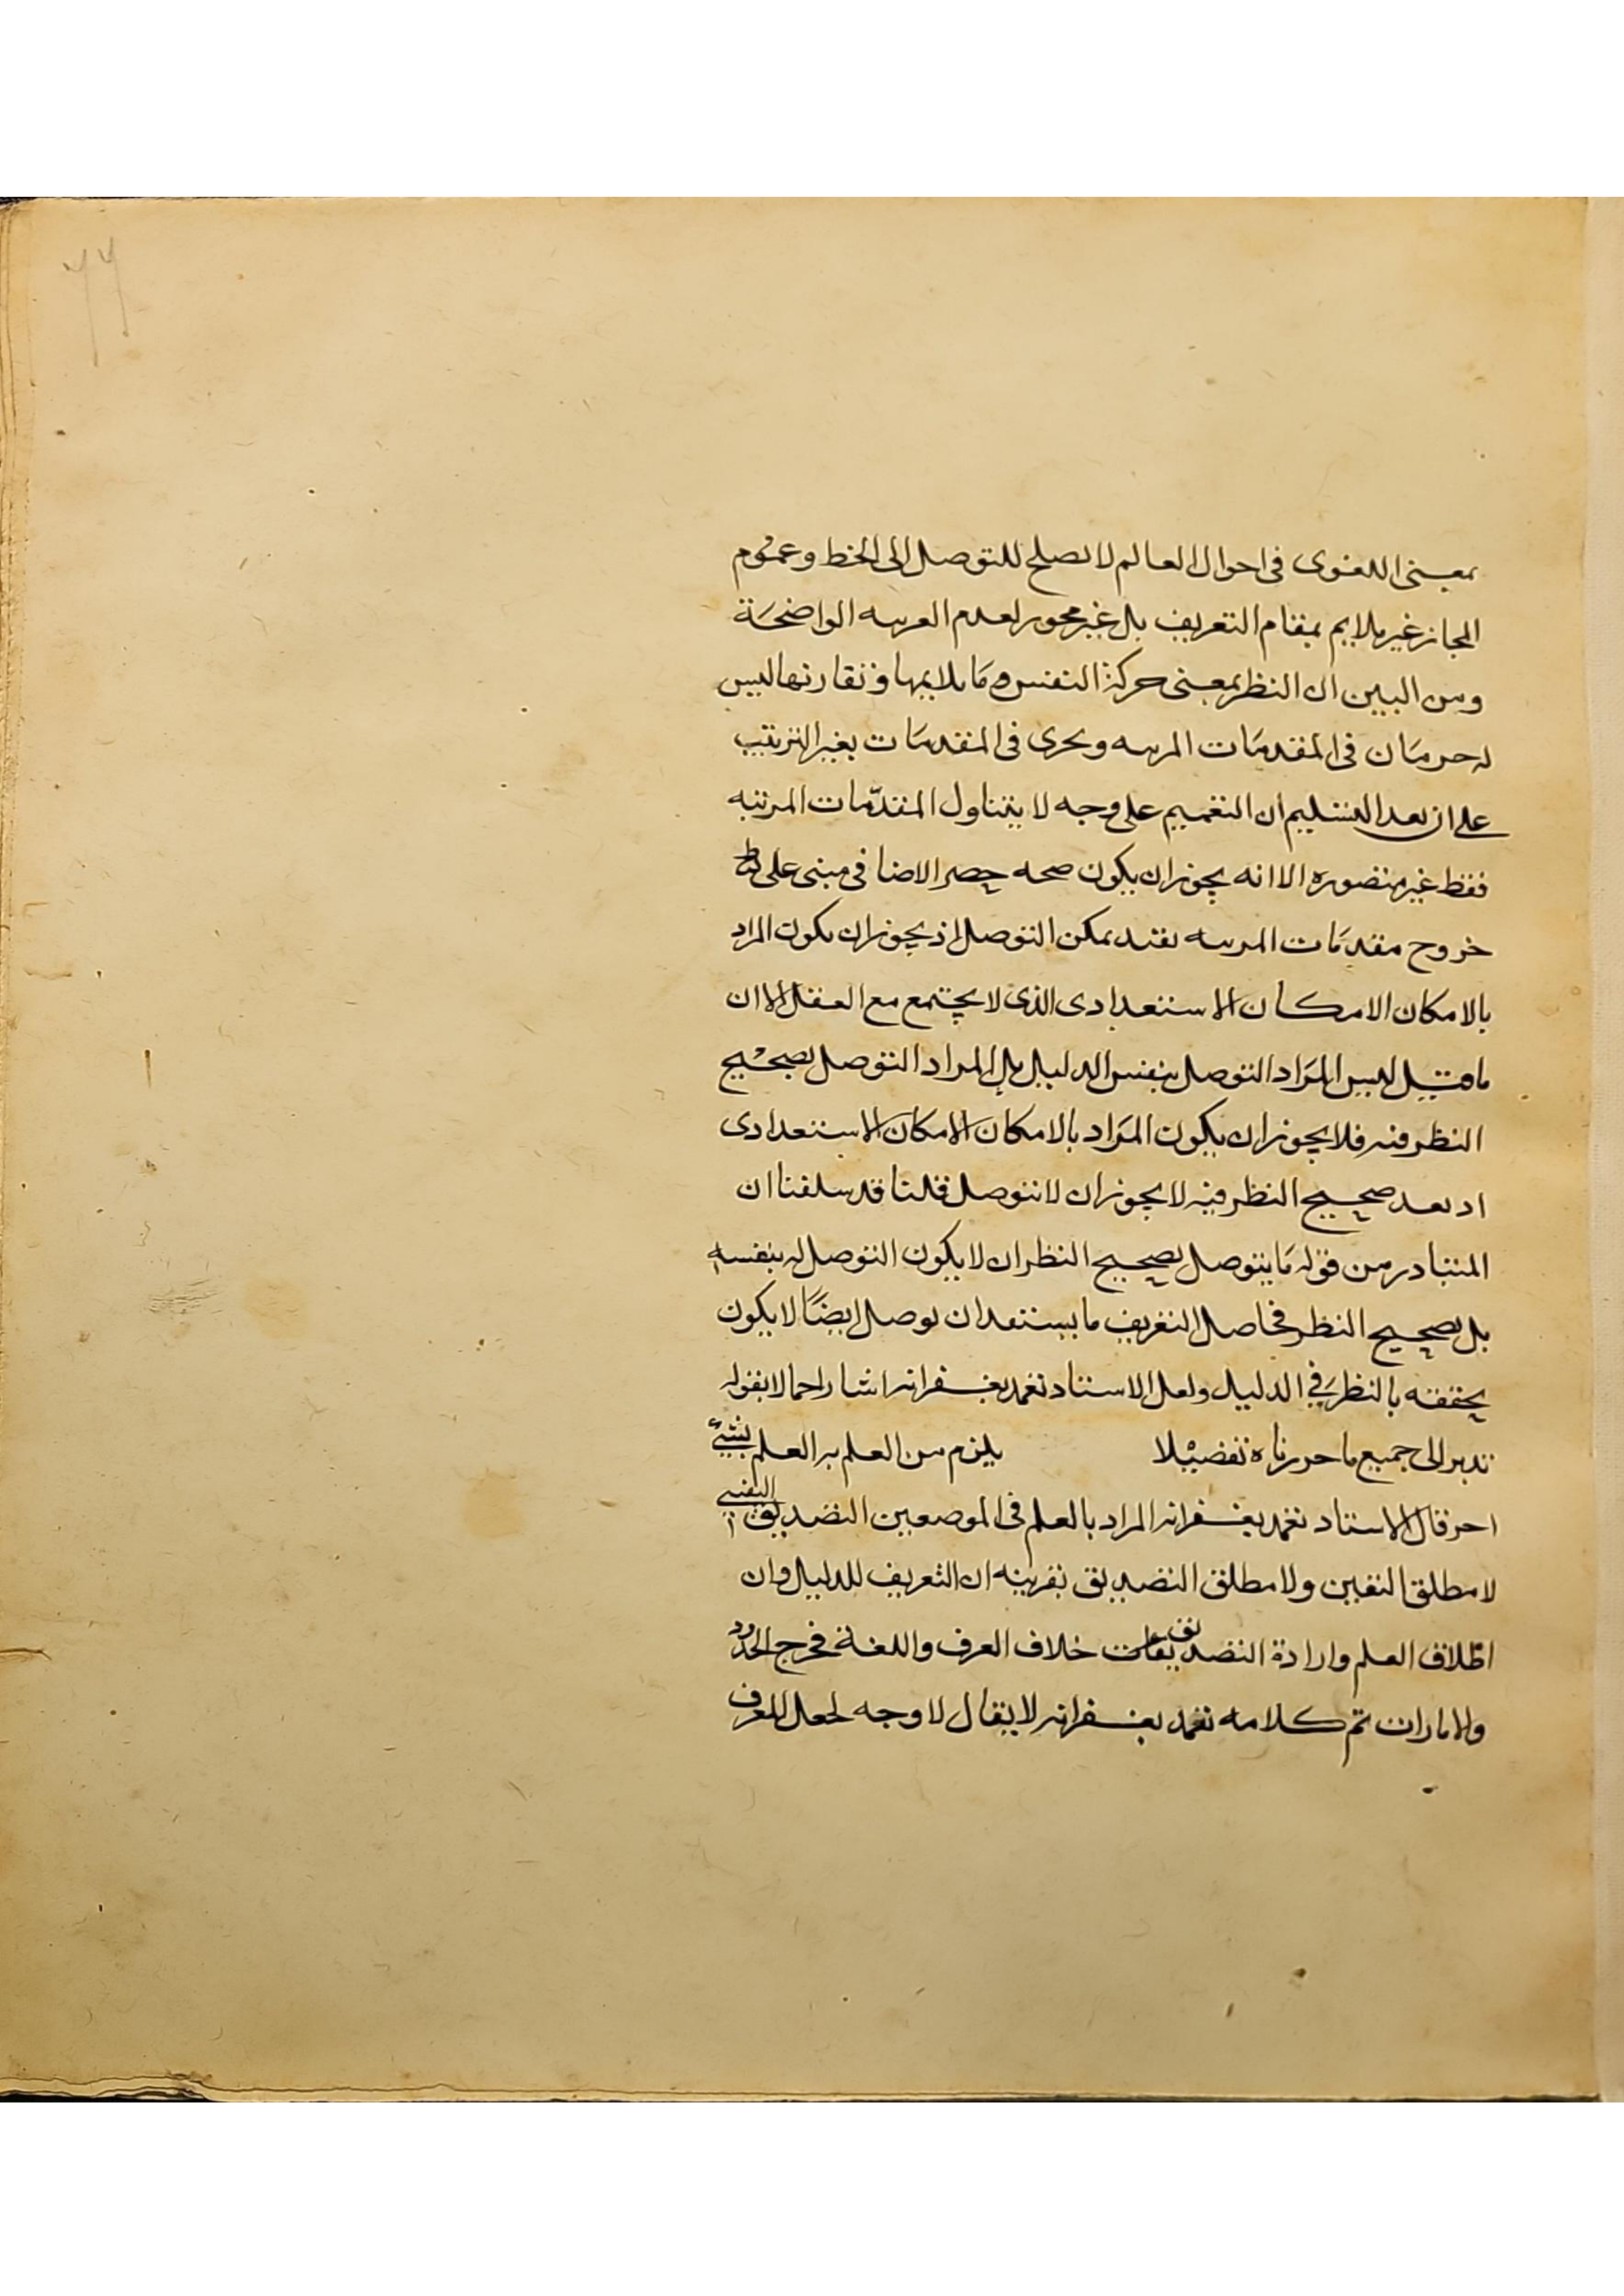 ٦٦
بمعنى اللغوى فى احوال العالم لا يصلح للتوصل الى الخط وعموم
المجاز غير ملايم بمقام التعريف بل غير مجوز لعدم القرينه الواضحة
ومن البين ان النظر بمعنى حركة النفس وما يلايمها وتقارنها ليس
له حرمان فى المقدمات المرتبه ويجرى فى المقدمات بغير الترتيب
على ان بعد التسليم ان التعميم على وجه لا يتناول المقدّمات المرتبه
فقط غير متصوره الا انه يجوز ان يكون صحه حصر الاضافى مبنى على
خروج مقدمات المرتبه بقيد يمكن التوصل اذ يجوز ان يكون المراد
بالامكان الامكان الاستعدادى الذى لا يجتمع مع العقل الا ان
ما قيل ليس المراد التوصل بنفس الدليل بل المراد التوصل بصحيح
النظر فيه فلا يجوز ان يكون المراد بالامكان الامكان الاستعدادى
اذ بعد صحيح النظر فيه لا يجوز ان لا يتوصل قلنا قد سلفنا ان
المتبادر من قوله ما يتوصل بصحيح النظر ان لا يكون التوصل له بنفسه
بل بصحيح النظر فحاصل التعريف ما يستعد ان يوصل ايضًا لا يكون
يحققه بالنظر فى الدليل ولعل الاستاد تغمد بغفرانه اشار اجمالا بقوله
تدبر الى جميع ما حررناه تفصيلا يلزم من العلم به العلم بشىء
اخر قال الاستاد تغمد بغفرانه المراد بالعلم فى الموضعين التصديق اليقينى
لا مطلق اليقين ولا مطلق التصديق بقرينه ان التعريف للدليل وان
اطلاق العلم وارادة التصديقات خلاف العرف واللغة فخرج الحدود
والامارات تم كلامه تغمد بغفرانه لا يقال لا وجه لجعل المعرف